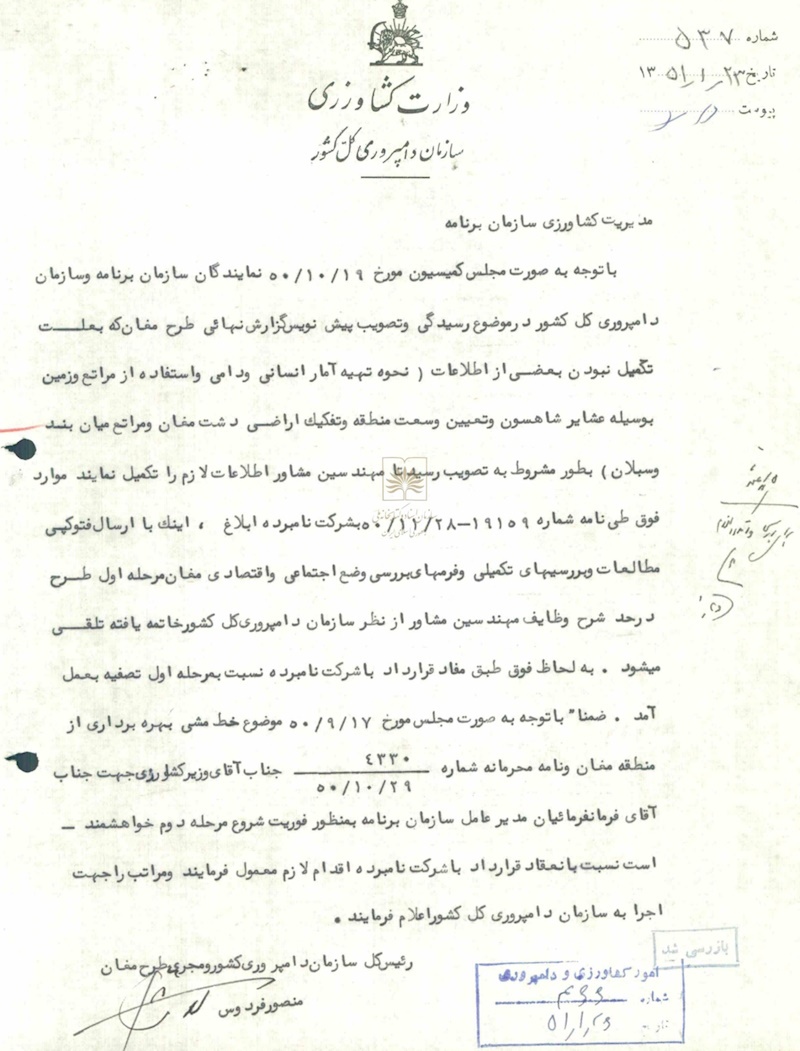 شماره ۵۳۷
تاریخ ۲۳/۱/۱۳۵۱
پیوست
وزارت کشاورزی
سازمان دامپروری کل کشور
مدیریت کشاورزی سازمان برنامه
با توجه به صورت مجلس کمیسیون مورخ ۵۰/۱۰/۱۹ نمایندگان سازمان برنامه وسازمان
دامپروری کل کشور در موضوع رسیدگی وتصویب پیش نویس گزارش نهائی طرح مغان که بعلت
تکمیل نبودن بعضی از اطلاعات ( نحوه تهیه آمار انسانی ودامی واستفاده از مراتع وزمین
بوسیله عشایر شاهسون وتعیین وسعت منطقه وتفکیک اراضی دشت مغان ومراتع میان بند
وسبلان ) بطور مشروط به تصویب رسید تا مهندسین مشاور اطلاعات لازم را تکمیل نمایند موارد
فوق طی نامه شماره ۱۹۱۵۹-۵۰/۱۱/۲۸ بشرکت نامبرده ابلاغ ، اینک با ارسال فتوکپی
مطالعات وبررسیهای تکمیلی وفرمهای بررسی وضع اجتماعی واقتصادی مغان مرحله اول طرح
درحد شرح وظایف مهندسین مشاور از نظر سازمان دامپروری کل کشور خاتمه یافته تلقی
میشود . به لحاظ فوق طبق مفاد قرارداد با شرکت نامبرده نسبت بمرحله اول تصفیه بعمل
آمد . ضمنا" با توجه به صورت مجلس مورخ ۵۰/۹/۱۷ موضوع خط مشی بهره برداری از
منطقه مغان ونامه محرمانه شماره ۴۳۳۰ جناب آقای وزیر کشاورزی جهت جناب
۵۰/۱۰/۲۹
آقای فرمانفرمائیان مدیر عامل سازمان برنامه بمنظور فوریت شروع مرحله دوم خواهشمند -
است نسبت بانعقاد قرارداد با شرکت نامبرده اقدام لازم معمول فرمایند ومراتب را جهت
اجرا به سازمان دامپروری کل کشور اعلام فرمایند .
رئیس کل سازمان دامپروری کشور ومجری طرح مغان
منصور فردوس
بازرسی شد
امور کشاورزی و دامپروری
شماره
تاریخ